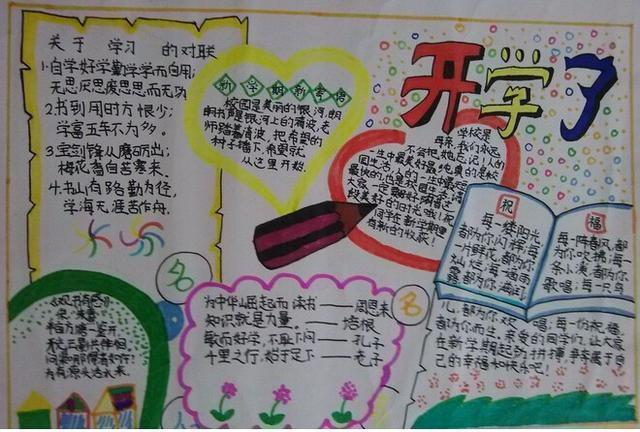 关于 学习 的对联
1.自学好学勤学学而自用;
无思厌思废思思而无功
2.书到用时方恨少;
学富五车不为多。
3.宝剑锋从磨砺出;
梅花香自苦寒来.
4.书山有路勤为径,
学海无涯苦作舟.
新学期新学语
校园是美丽的银河,明
把希望的
种子播下,希望就
从这里开始.
开学了
学校是
母亲,我们永远
不会把她忘记!人的
一生中最美好最纯真的是校
园生活,人的一生中最
大家一定要
段美好的时光哦!祝
同学在新学期里
有新的收获!
祝
每一缕阳光
都为你闪耀,每
一片鲜花,都为你
灿烂,每一滴雨
露,都为你滋润
福
每一阵春风,都
为你吹拂,每一
条小溪,都为你
歌唱,每一只鸟
儿,都为你欢
唱;每一份祝福,
都为你而生,亲爱的同学们,让大家
在新学期起的拼搏,争幸属于自
己的幸福和快乐吧!
《观书有感》
宋 朱熹
半亩方塘一鉴开,
天光云影共徘徊.
问渠那得清如许?
为有源头活水来.
名
名
人
为中华崛起而读书——周恩来
知识就是力量。——培根
敏而好学,不耻下问——孔子
千里之行,始于足下——老子